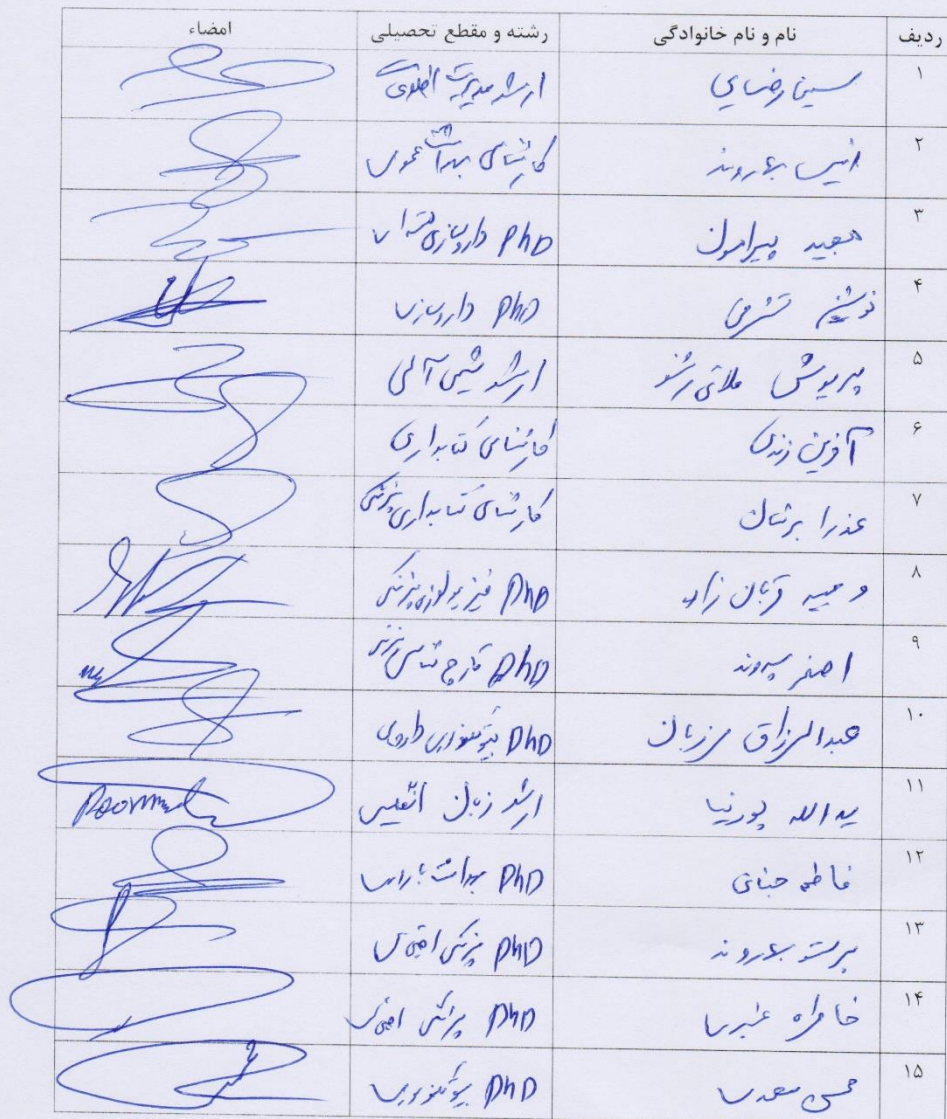 ردیف نام و نام خانوادگی رشته و مقطع تحصیلی امضاء
۱ سینا رضایی ارشد مدیریت اطلاعات
۲ انیس بهاروند کارشناسی بهداشت عمومی
۳ پیرامون PhD داروسازی هسته ای
۴ نوشین تشرفی PhD داروسازی
۵ پریوش ملائی رشنو ارشد شیمی آلی
۶ آفرین زندی کارشناسی کتابداری
۷ عذرا برتنان کارشناسی کتابداری پزشکی
۸ وحید قربان زاده PhD فیزیولوژی پزشکی
۹ اصغر سپهوند PhD قارچ شناسی پزشکی
۱۰ عبدالرزاق مرزبان PhD بیوتکنولوژی دارویی
۱۱ یدالله پورنیا ارشد زبان انگلیسی
۱۲ فاطمه جنانی PhD بهداشت باروری
۱۳ پرستو بهاروند PhD پزشکی اجتماعی
۱۴ خاطره عنبری PhD پزشکی اجتماعی
۱۵ محسن سعدی PhD بیوتکنولوژی